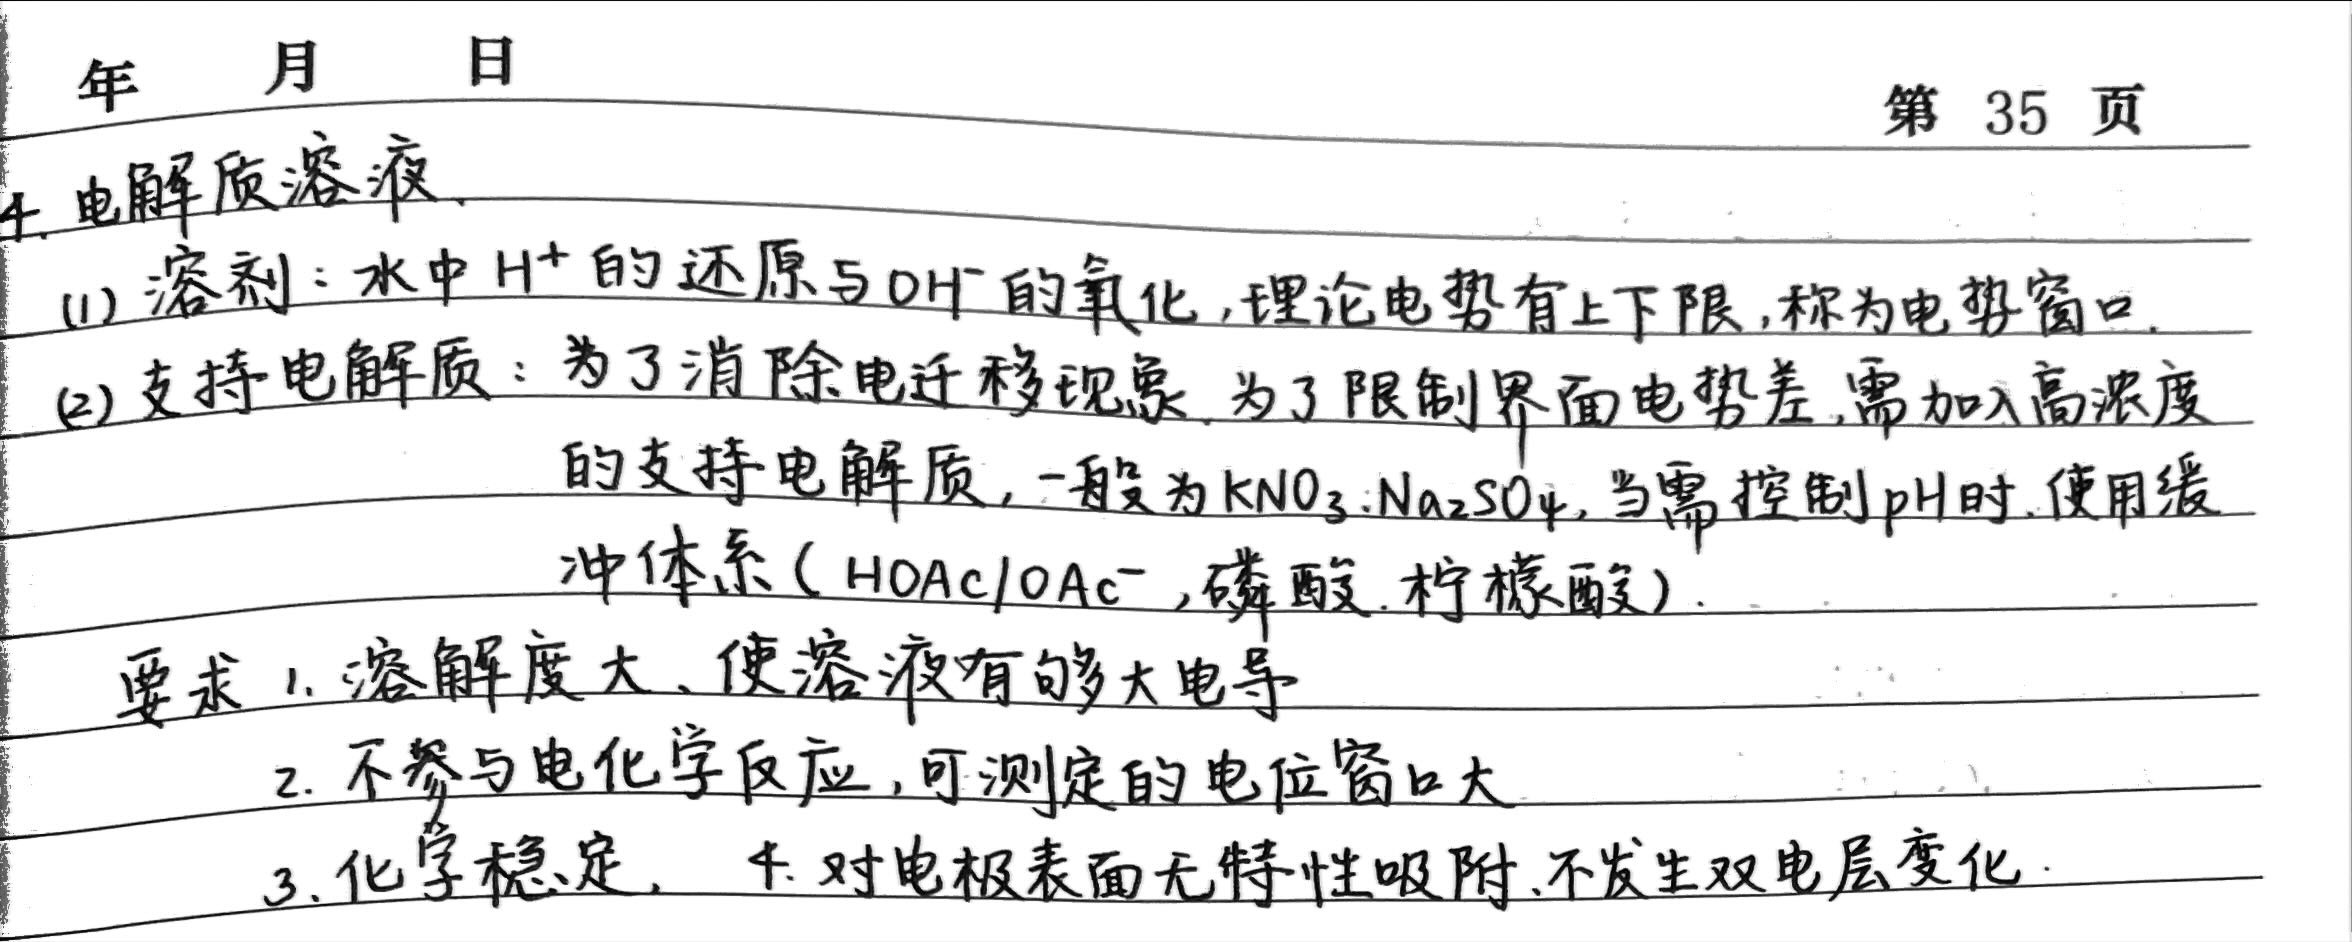 年 月 日
第 35 页
4. 电解质溶液.
(1) 溶剂：水中 H⁺ 的还原与OH⁻的氧化,理论电势有上下限,称为电势窗口.
(2) 支持电解质：为了消除电迁移现象.为了限制界面电势差,需加入高浓度
的支持电解质,一般为KNO₃.Na₂SO₄,当需控制pH时.使用缓
冲体系(HOAc/OAc⁻,磷酸.柠檬酸).
要求 1. 溶解度大、使溶液有够大电导
2. 不参与电化学反应,可测定的电位窗口大
3. 化学稳定. 4. 对电极表面无特性吸附.不发生双电层变化.